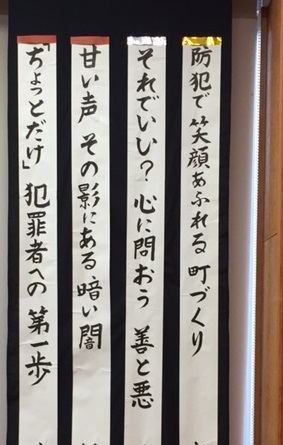 防犯で 笑顔あふれる 町づくり
それでいい？ 心に問おう 善と悪
甘い声 その影にある、暗い闇
「ちょっとだけ」 犯罪者への 第一歩